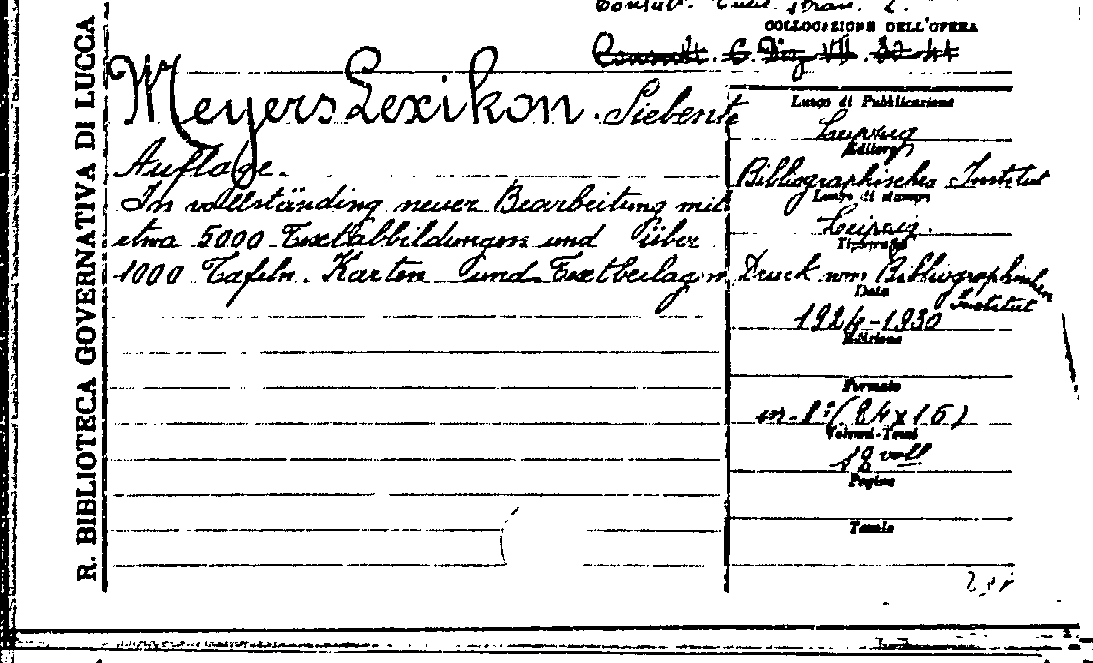 R. BIBLIOTECA GOVERNATIVA DI LUCCA
COLLOCAZIONE DELL'OPERA
Meyers Lexikon. Siebente
Auflage.
In vollständing neuer Bearbeitung mit
etwa 5000 Textabbildungen und über
1000 Tafeln. Karten und Textbeilagen
Luogo di Pubblicazione
Leipzig
Editore
Bibliographisches Institut
Luogo di stampa
Leipzig.
Tipografo
Druck vom Bibliographischen
Institut
Data
1924-1930
Edizione
Formato
in-8° (24x16)
Volumi-Tomi
18 voll
Pagine
Tavole